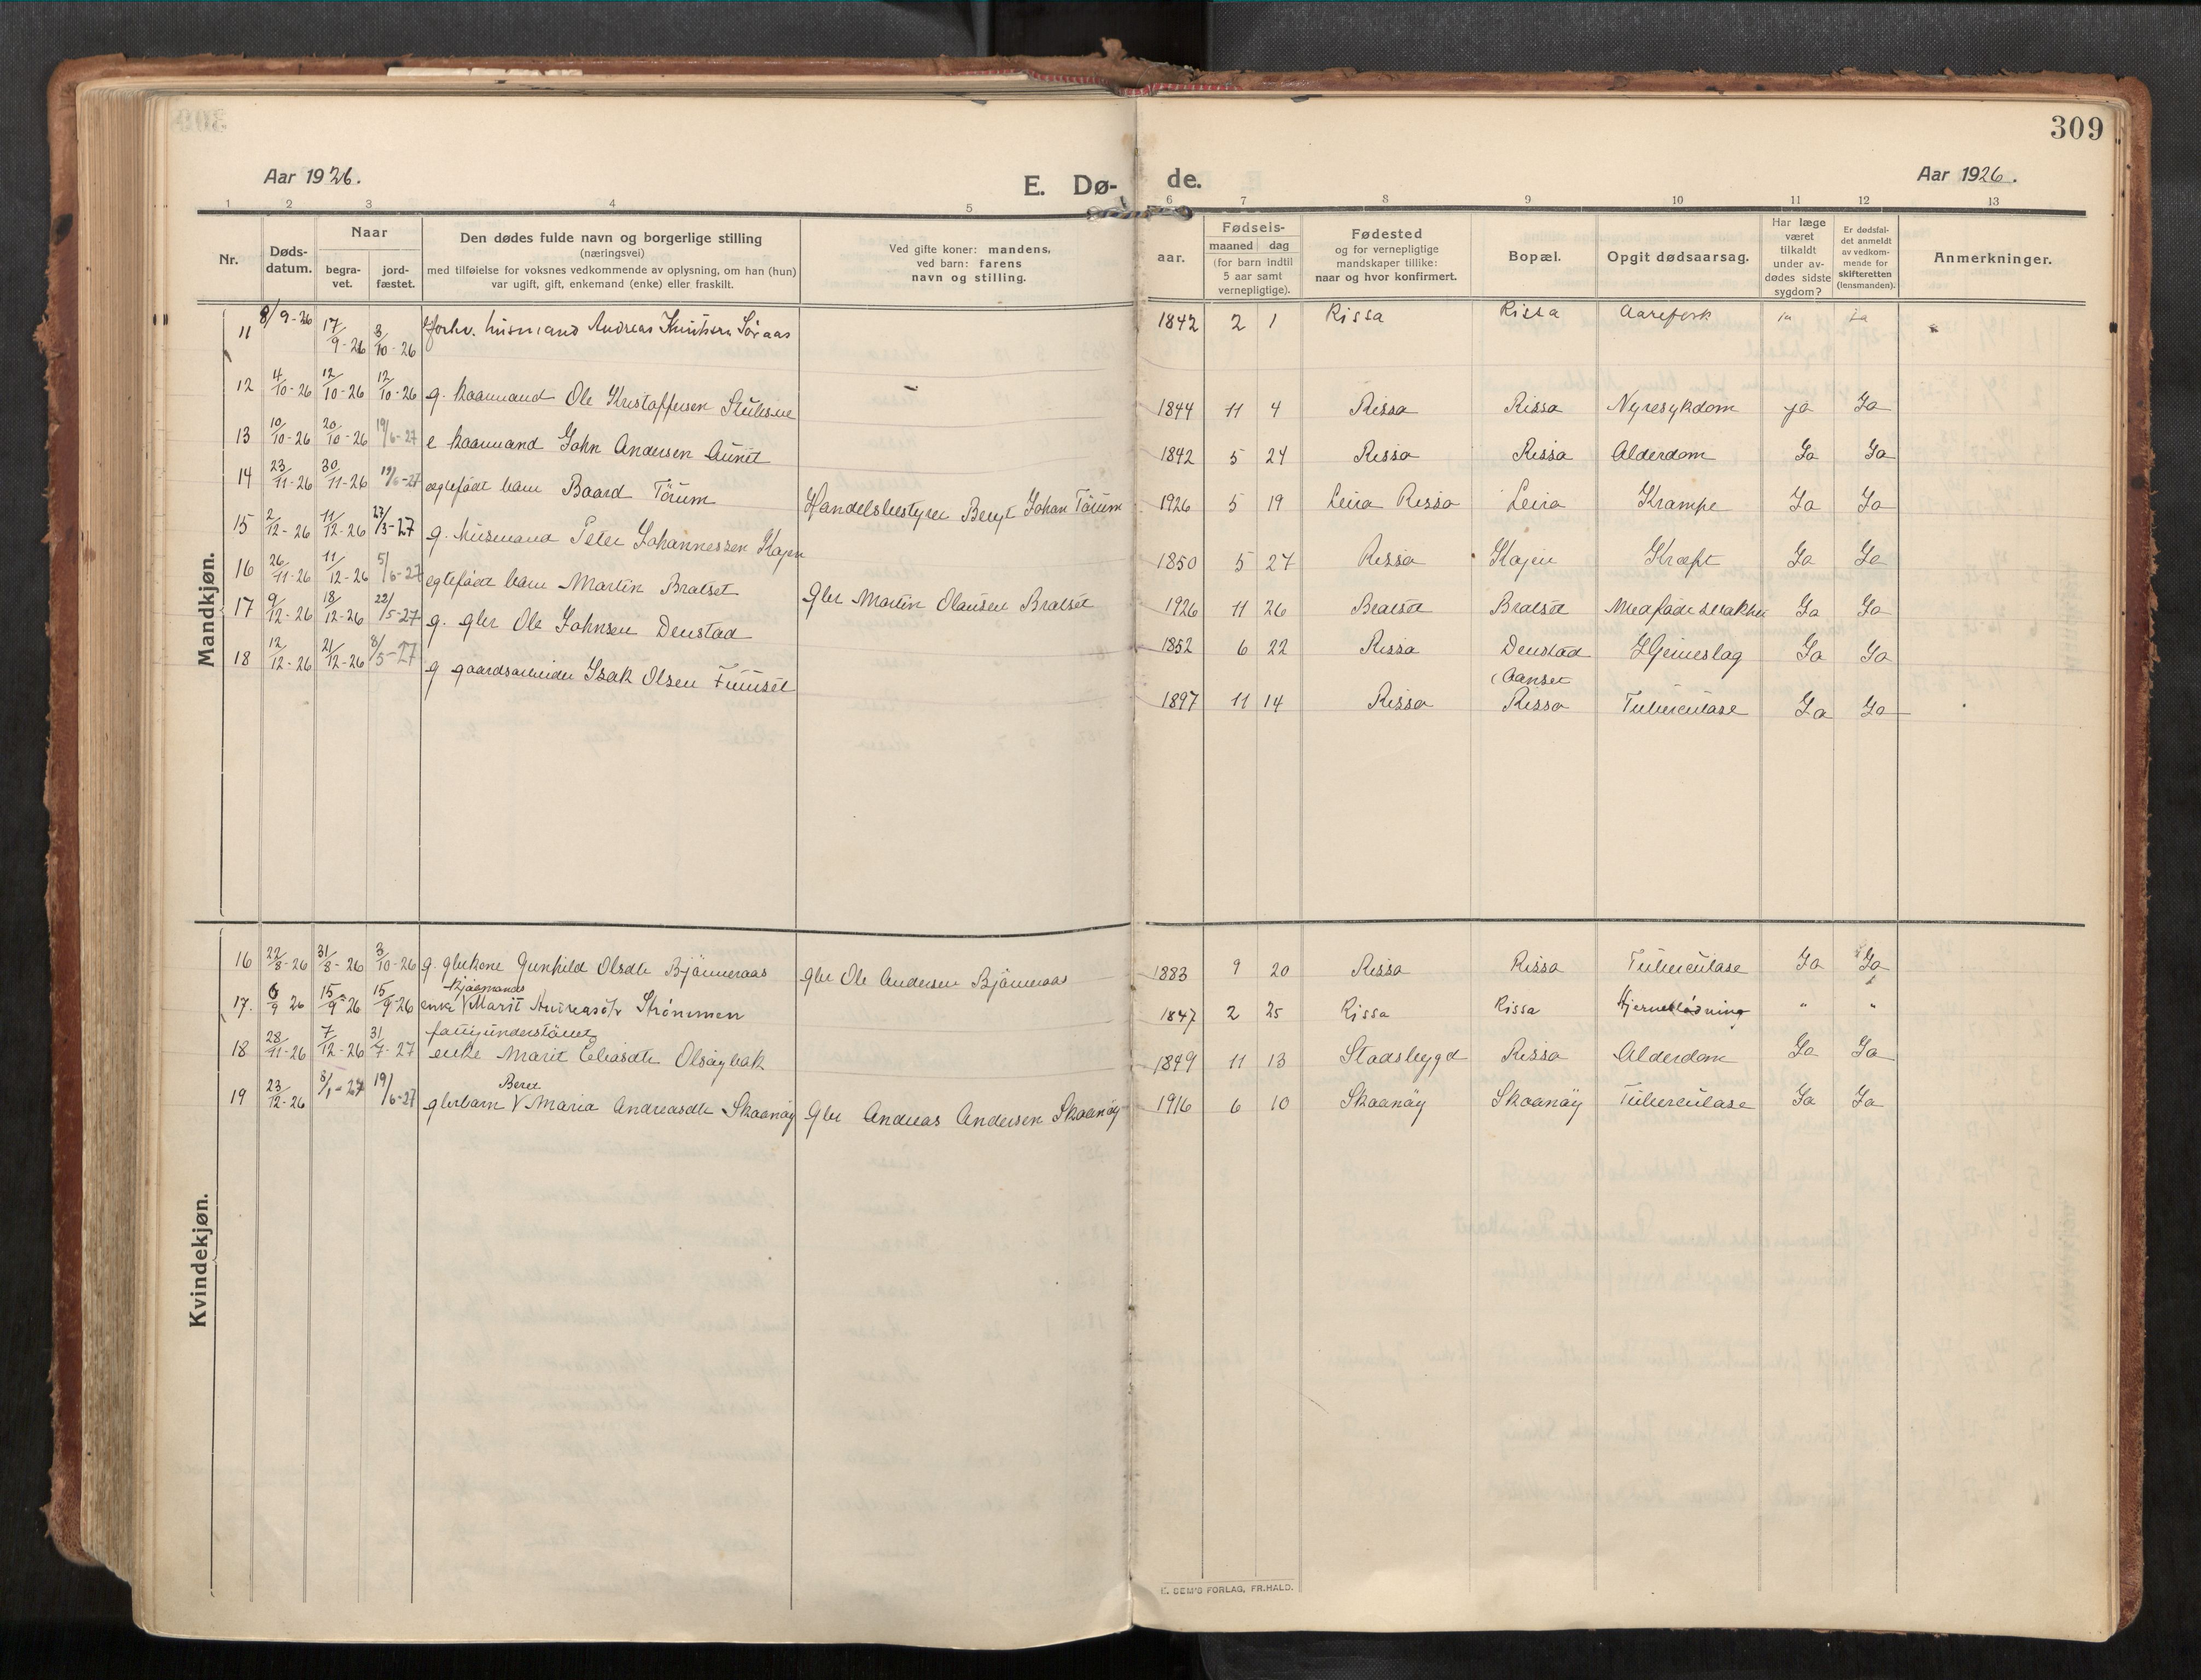 309
Aar 1926.
E. Dø- de.
Aar 1926.
1 2 3 4 5 6 7 8 9 10 11 12 13
Nr.
Døds-
datum.
Naar
begra-
vet.
jord-
fæstet.
Den dødes fulde navn og borgerlige stilling
(næringsvei)
med tilføielse for voksnes vedkommende av oplysning, om han (hun)
var ugift, gift, enkemand (enke) eller fraskilt.
Ved gifte koner: mandens,
ved barn: farens
navn og stilling.
Fødsels-
aar.
maaned dag
(for barn indtil
5 aar samt
vernepligtige).
Fødested
og for vernepligtige
mandskaper tillike:
naar og hvor konfirmert.
Bopæl.
Opgit dødsaarsag.
Har læge
været
tilkaldt
under av-
dødes sidste
sygdom?
Er dødsfal-
det anmeldt
av vedkom-
mende for
skifteretten
(lensmanden).
Anmerkninger.
Mandkjøn.
11 8/9-26 17/9-26 3/10-26 forhv. husmand Andreas Søraas 1842 2 1 Rissa Rissa ja ja
12 4/10-26 12/10-26 12/10-26 g. kaarmand Ole Kristoffersen 1844 11 4 Rissa Rissa Nyresykdom ja Ja
13 10/10-26 20/10-26 19/6-27 e kaarmand John Andersen Aunet 1842 5 24 Rissa Rissa Alderdom Ja Ja
14 23/11-26 30/11-26 19/6-27 ægtefødt barn Baard Tørum Handelsbestyrer Bengt Johan Tørum 1926 5 19 Leira Rissa Leira Krampe Ja Ja
15 2/12-26 11/12-26 27/3-27 g. husmand Peter Johannessen Kajen 1850 5 27 Rissa Kajen Kræft Ja Ja
16 26/11-26 11/12-26 5/6-27 egtefødt barn Martin Bratset Gbr Martin Olausen Bratset 1926 11 26 Bratset Bratset Medfødt svakhet Ja Ja
17 9/12-26 18/12-26 22/5-27 g. gbr Ole Johnsen Denstad 1852 6 22 Rissa Denstad Hjerneslag Ja Ja
18 12/12-26 21/12-26 8/5-27 g gaardsarbeider Isak Olsen Fuuset 1897 11 14 Rissa (Aanset Rissa Tuberculose Ja Ja
Kvindekjøn.
16 22/8-26 31/8-26 3/10-26 g. gbrkone Gunhild Olsdtr Bjönneraas Gbr Ole Andersen Bjönneraas 1883 9 20 Rissa Rissa Tuberculose Ja Ja
17. 6/9 26 15/9-26 15/9-26 enke V Marit Andreasdtr Strømmen 1847 2 25 Rissa Rissa Hjerneblødning " "
fattigunderstöttet
18 28/11-26 7/12-26 31/7-27 enke Marit Eliasdtr Olsöybak 1849 11 13 Stadsbygd Rissa Alderdom Ja Ja
Beret
19 23/12-26 8/1-27 19/6-27 gbrbarn V Maria Andreasdtr Skaanöy Gbr Andreas Andersen Skaanöy 1916 6 10 Skaanöy Skaanöy Tuberculose Ja Ja
E. SEM'S FORLAG, FR.HALD.